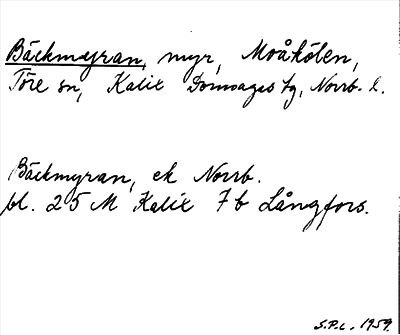 Bäckmyran, myr, Moåkölen,
Töre sn, Kalix Domsagas tg, Norrb. l.
Bäckmyran, ek Norrb.
bl. 25 M Kalix 7b Långfors.
S.P.L. 1959.